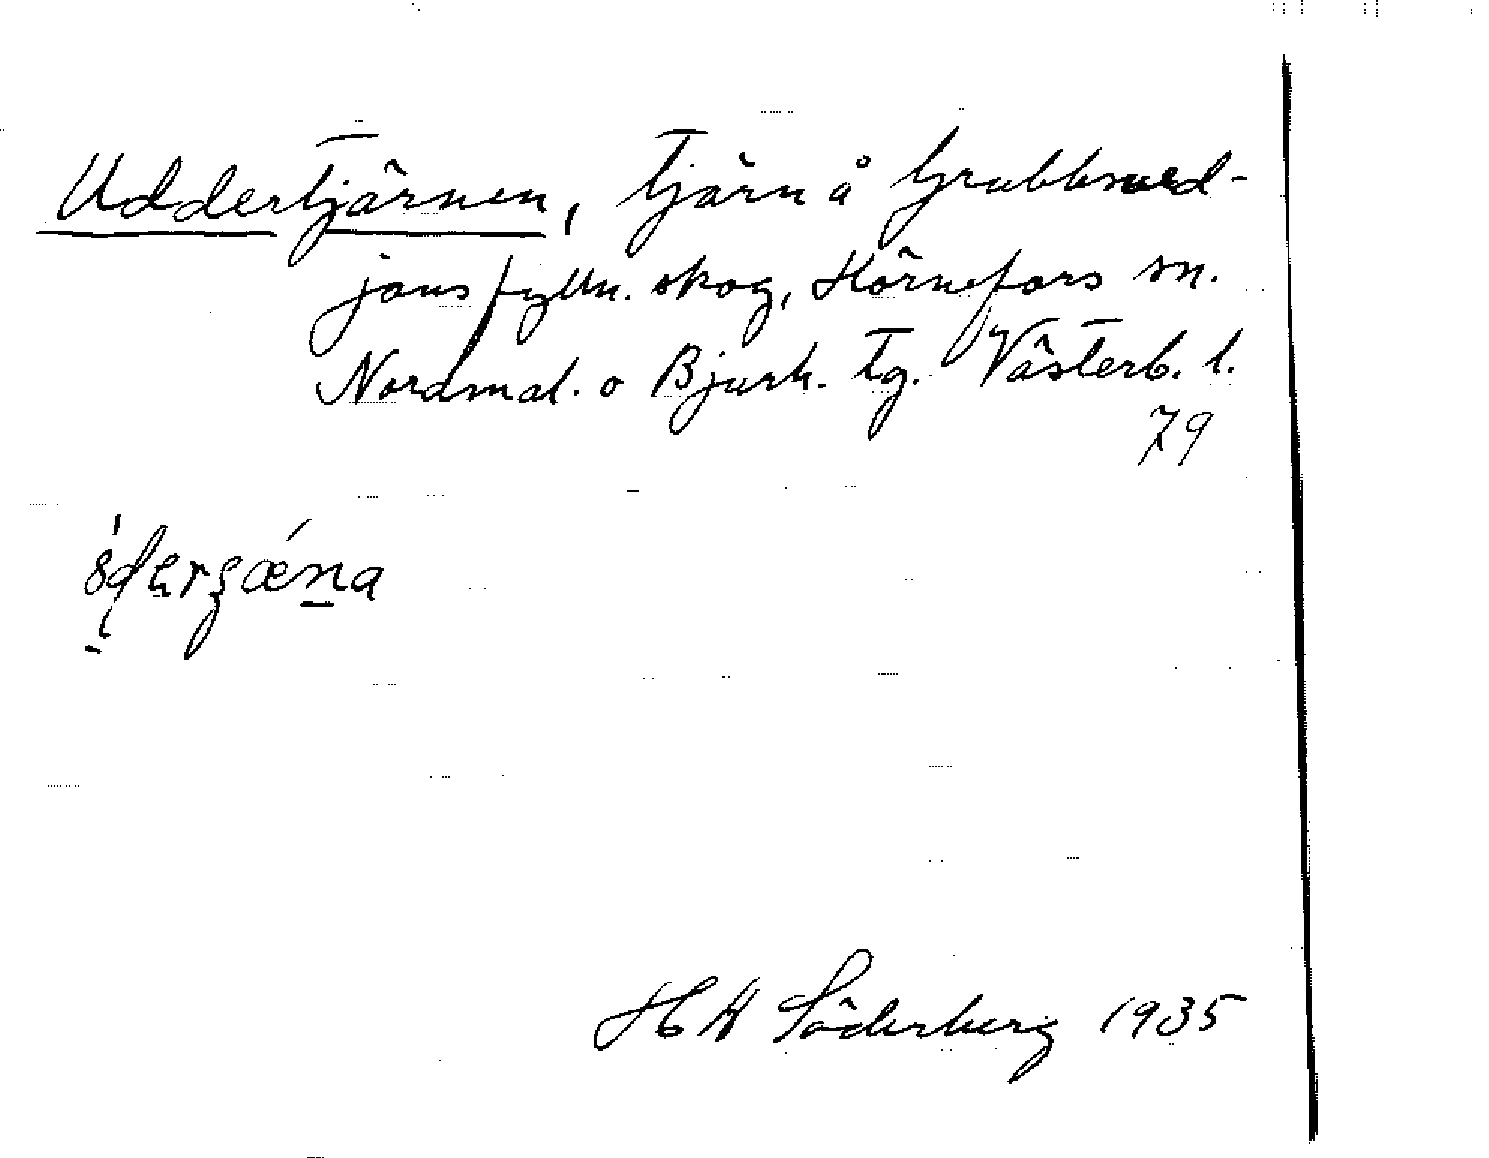 Uddertjärnen, Tjärn å Grubbsmed-
jans fylln. skog, Hörnefors sn.
Nordmal. o Bjurh. Tg. Västerb. l.
79
H W Söderberg 1935